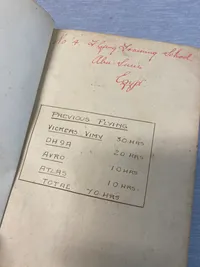 No 4 Flying Training School
Abu Sueir
Egypt
PREVIOUS FLYING
VICKERS VIMY 30 HRS
DH9A " " 20 HRS
AVRO 10 HRS
ATLAS 10 HRS
TOTAL 70 HRS